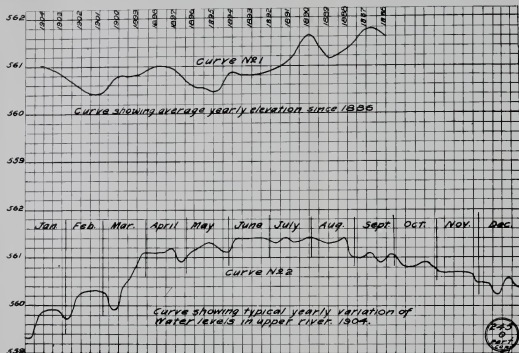 562
1904 1903 1902 1901 1900 1899 1898 1897 1896 1895 1894 1893 1892 1891 1890 1889 1888 1887 1886
Curve №1
561
Curve showing average yearly elevation since 1886
560
559
562
Jan Feb. Mar. April May June July Aug. Sept Oct. Nov. Dec.
561
Curve №2
560
Curve showing typical yearly variation of
Water levels in upper river. 1904.
559
Part